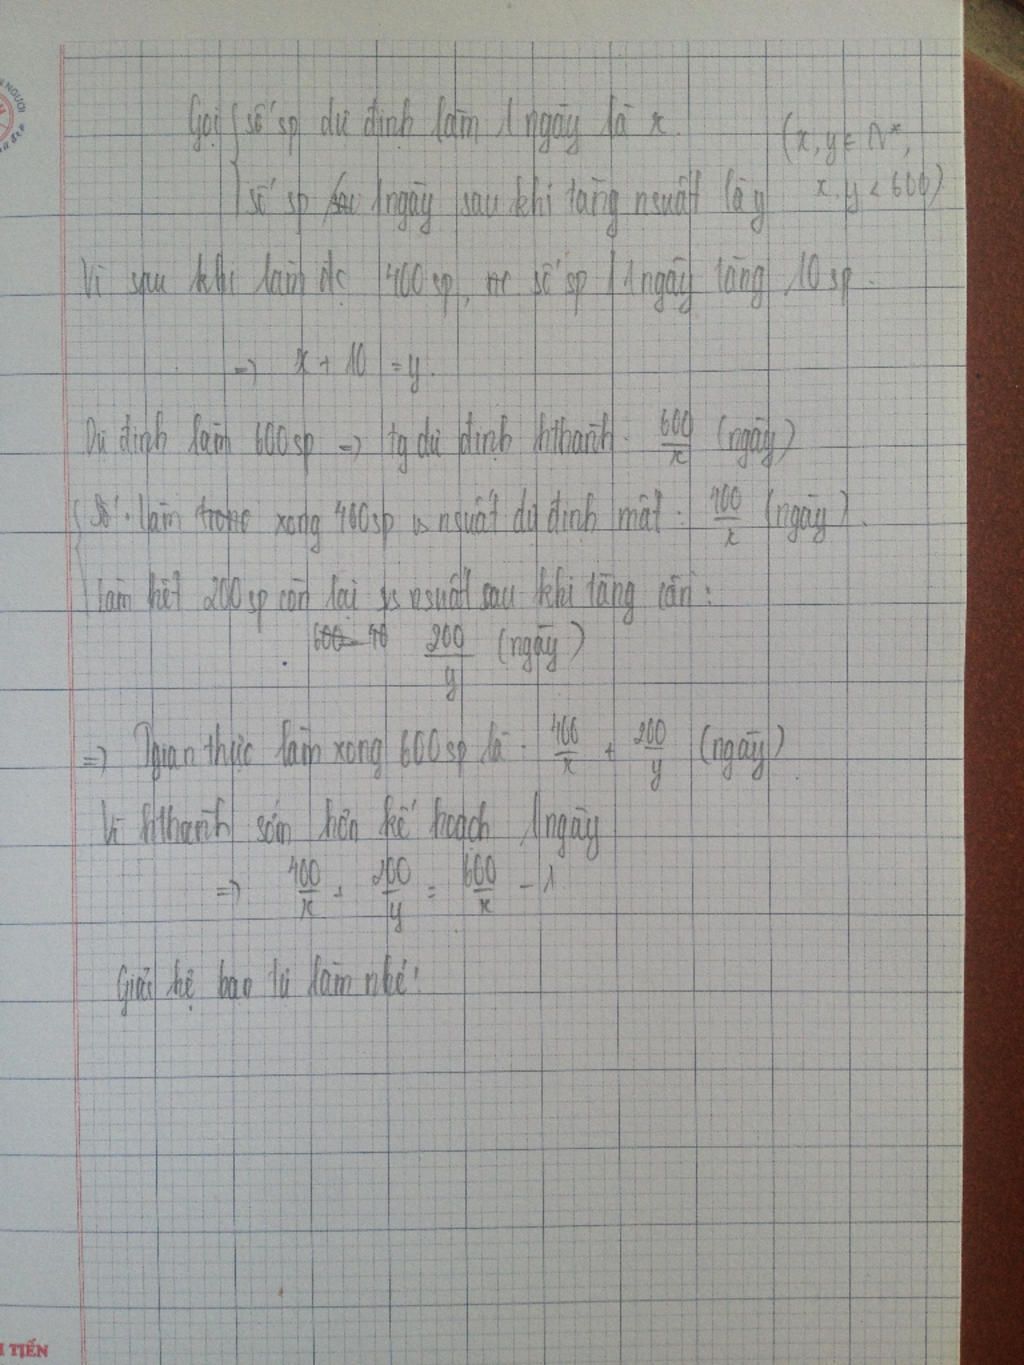 Gọi { số sp dự định làm 1 ngày là x. (x, y ∈ N*,
số sp 1 ngày sau khi tăng nsuất là y x, y < 600)
Vì sau khi làm đc 400 sp, số sp / 1 ngày tăng 10 sp.
=> x + 10 = y.
Dự định làm 600 sp => tg dự định hthành: 600/x (ngày)
làm xong 400 sp vs nsuất dự định mất: 400/x (ngày).
làm hết 200 sp còn lại vs nsuất sau khi tăng cần:
200/y (ngày)
=> Tgian thực làm xong 600 sp là: 400/x + 200/y (ngày)
Vì hthành sớm hơn kế hoạch 1 ngày
=> 400/x + 200/y = 600/x - 1
Giải hệ bạn tự làm nhé!
NGƯỜI
TIẾN